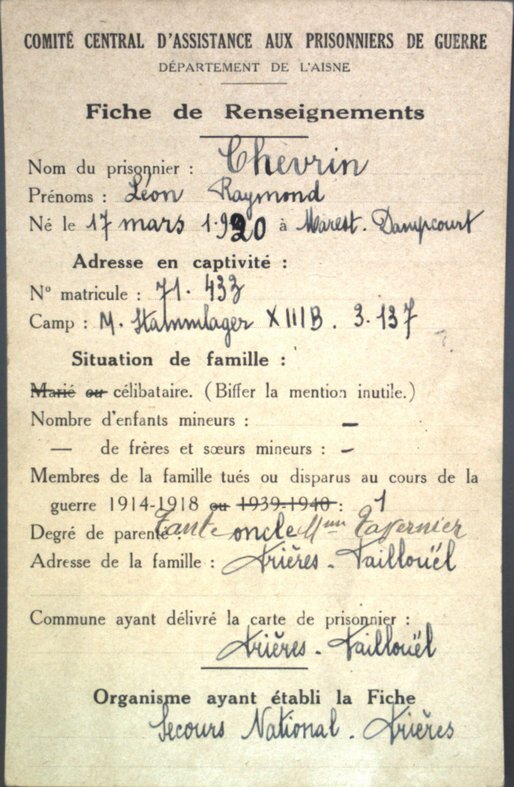 COMITÉ CENTRAL D'ASSISTANCE AUX PRISONNIERS DE GUERRE
DÉPARTEMENT DE L'AISNE
Fiche de Renseignements
Nom du prisonnier : Chevrin
Prénoms : Léon Raymond
Né le 17 mars 1.920 à Marest. Dampcourt
Adresse en captivité :
N° matricule : 71. 433
Camp : M. Stammlager XIIIB. 3.137
Situation de famille :
Marié ou célibataire. (Biffer la mention inutile.)
Nombre d'enfants mineurs : —
— de frères et sœurs mineurs : —
Membres de la famille tués ou disparus au cours de la
guerre 1914-1918 ou 1939-1940 : 1
Degré de parenté : Tante oncle Mme Tavernier
Adresse de la famille : Frières - Faillouël
Commune ayant délivré la carte de prisonnier :
Frières - Faillouël
Organisme ayant établi la Fiche
Secours National. Frières